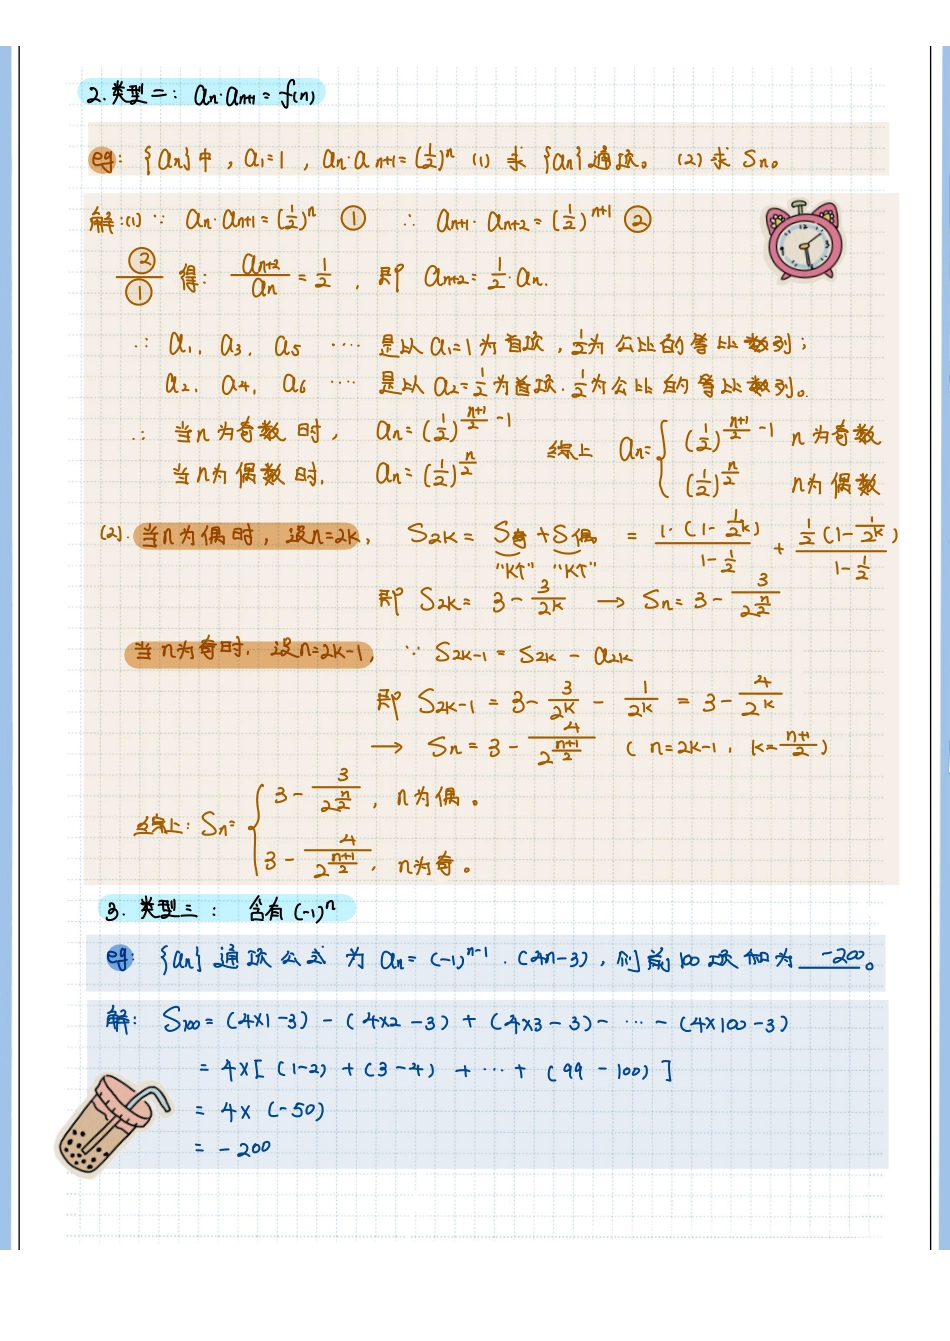 2.类型二： aₙ·aₙ₊₁=f(n)
eg： {aₙ}中，a₁=1，aₙ·aₙ₊₁=(1/2)ⁿ (1)求{aₙ}通项。 (2)求Sₙ。
解：(1) ∵ aₙ·aₙ₊₁=(1/2)ⁿ ① ∴ aₙ₊₁·aₙ₊₂=(1/2)ⁿ⁺¹ ②
②/① 得： aₙ₊₂/aₙ = 1/2 ，即 aₙ₊₂= 1/2·aₙ.
∴ a₁, a₃, a₅ ···· 是以a₁=1为首项，1/2为公比的等比数列；
a₂, a₄, a₆ ···· 是以a₂=1/2为首项.1/2为公比的等比数列。
∴ 当n为奇数时， aₙ=(1/2)^((n+1)/2 -1) 综上 aₙ={ (1/2)^((n+1)/2 -1) n为奇数
当n为偶数时， aₙ=(1/2)^(n/2) (1/2)^(n/2) n为偶数
(2). 当n为偶时，设n=2k， S₂ₖ= S奇+S偶 = 1·(1-1/2^k)/(1-1/2) + 1/2(1-1/2^k)/(1-1/2)
"k个" "k个"
即 S₂ₖ= 3 - 3/2^k → Sₙ= 3 - 3/2^(n/2)
当n为奇时，设n=2k-1， ∵ S₂ₖ₋₁ = S₂ₖ - a₂ₖ
即 S₂ₖ₋₁ = 3 - 3/2^k - 1/2^k = 3 - 4/2^k
→ Sₙ = 3 - 4/2^((n+1)/2) ( n=2k-1, k=(n+1)/2 )
综上：Sₙ={ 3 - 3/2^(n/2) ，n为偶。
3 - 4/2^((n+1)/2) ，n为奇。
3. 类型三： 含有(-1)ⁿ
eg： {aₙ}通项公式为 aₙ=(-1)ⁿ⁻¹·(4n-3)，则前100项和为 -200 。
解： S₁₀₀=(4×1-3)-(4×2-3)+(4×3-3)- ··· -(4×100-3)
= 4×[ (1-2) + (3-4) + ··· + (99-100) ]
= 4×(-50)
= -200